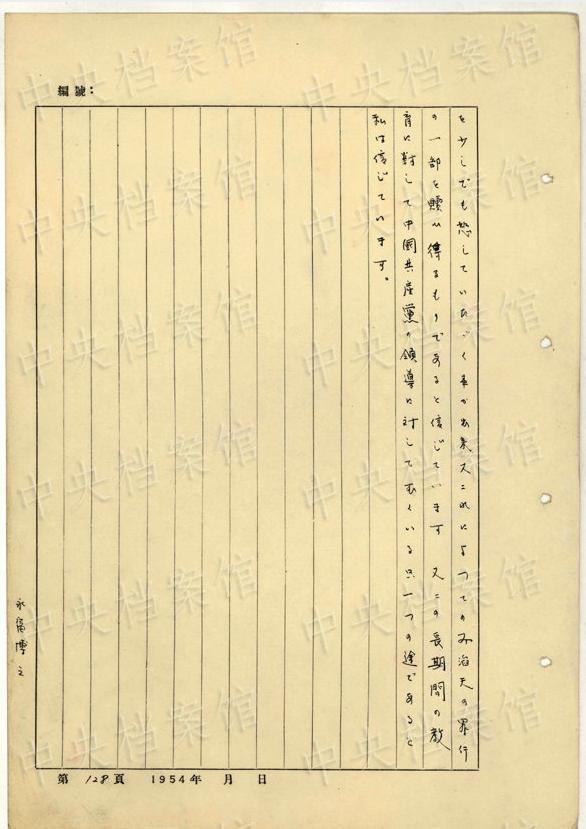 編號:
を少しでも恕していたゞく事が出来又これによつてのみ滔天の罪行
の一部を贖い得るものであると信じています 又この長期間の教
育に対して中國共産黨の領導に対してむくいる只一つの途であると
私は信じています。
永富博之
第128頁 1954年 月 日
中央档案馆